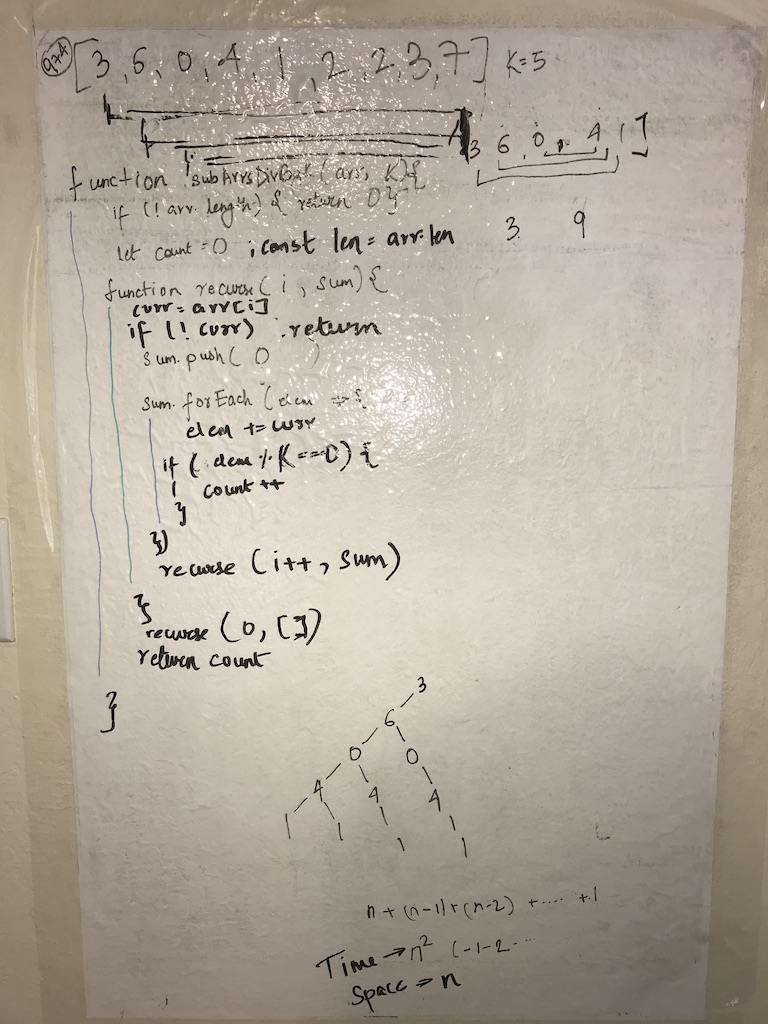 974 [3, 6, 0, 4, 1, 2, 2, 3, 7] K=5
3 6, 0, 4, 1]
function subArrsDivByK (arr, K){
if (! arr. length) { return 0}
3 9
let count = 0 ; const len = arr.len
function recurse ( i , sum) {
curr = arr[i]
if (! curr) return
sum. push ( 0 )
sum. forEach (elem => {
elem += curr
if ( elem % K ==0) {
count ++
}
})
recurse (i++, sum)
}
recurse (0, [])
return count
}
3
6
0 0
4 4 4
1 1 1 1
n + (n-1)+(n-2) + .... +1
Time → n² (-1-2...
Space → n